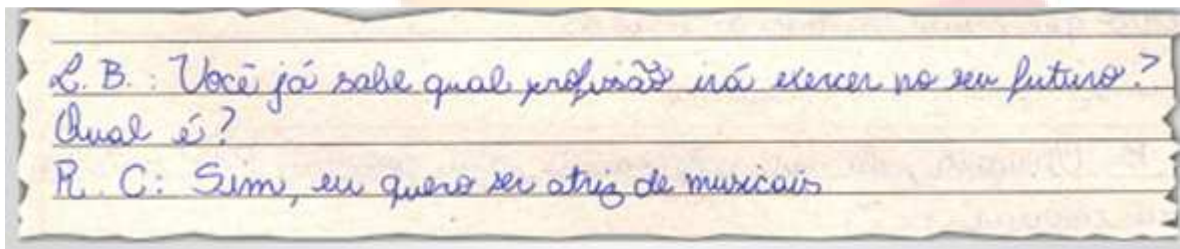 L. B. : Você já sabe qual profissão irá exercer no seu futuro?
Qual é?
R. C: Sim, eu quero ser atriz de musicais